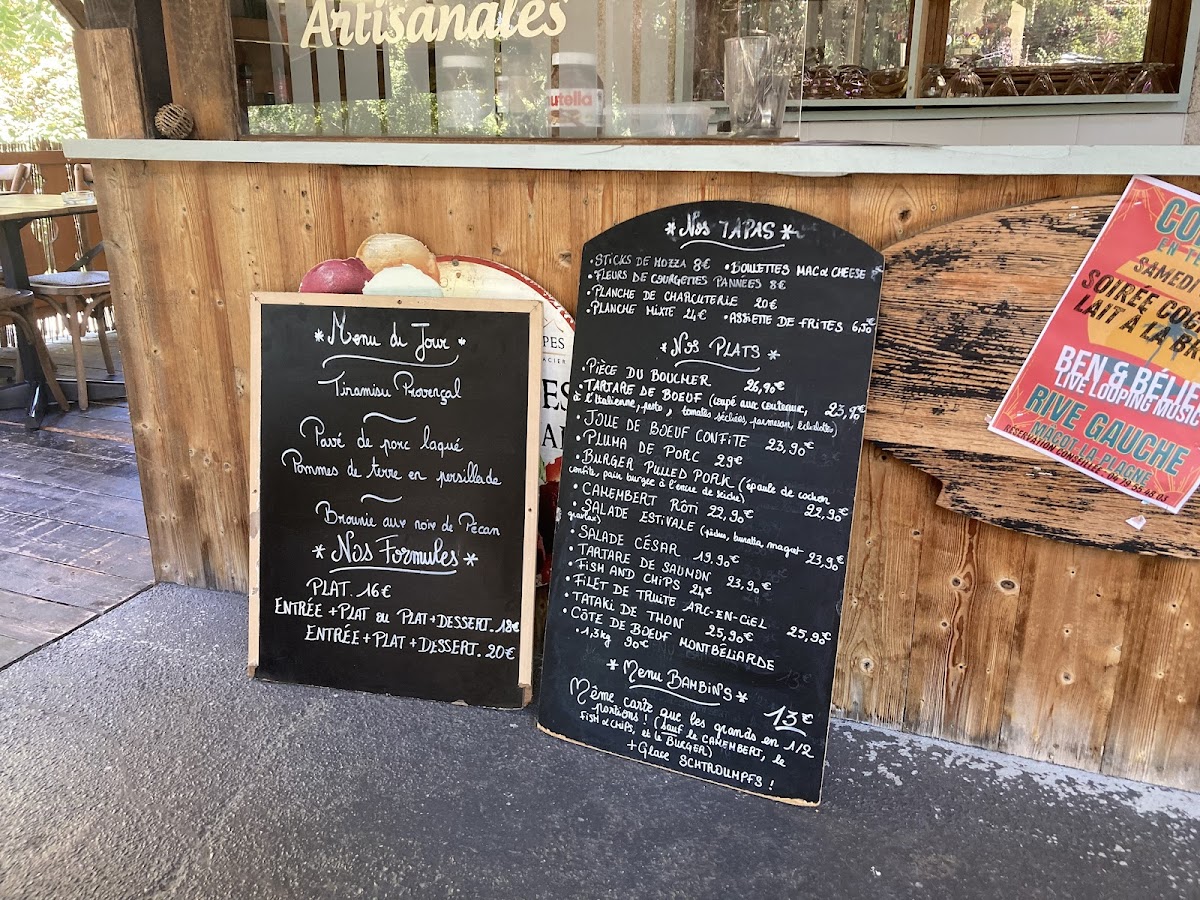 Artisanales
nutella
* Menu du Jour *
Tiramisu Provençal
Pavé de porc laqué
Pommes de terre en persillade
Brownie aux noix de Pécan
* Nos Formules *
PLAT. 16€
ENTRÉE + PLAT ou PLAT + DESSERT. 18€
ENTRÉE + PLAT + DESSERT. 20€
* Nos TAPAS *
• STICKS DE MOZZA 8€ • BOULETTES MAC & CHEESE
• FLEURS DE COURGETTES PANNÉES 8€
• PLANCHE DE CHARCUTERIE 20€
• PLANCHE MIXTE 24€ • ASSIETTE DE FRITES 6,50€
* Nos PLATS *
• PIÈCE DU BOUCHER 26,90€
• TARTARE DE BOEUF (coupé aux couteaux, 23,90€
à l'Italienne, pesto, tomates séchées, parmesan, échalottes)
• JOUE DE BOEUF CONFITE 23,90€
• PLUMA DE PORC 29€
• BURGER PULLED PORK (épaule de cochon
confite, pain burger à l'encre de seiche) 22,90€
• CAMEMBERT RÔTI 22,90€
• SALADE ESTIVALE (pêches, burratta, magret 23,90€
gravlax)
• SALADE CÉSAR 19,90€
• TARTARE DE SAUMON 23,90€
• FISH AND CHIPS 24€
• FILET DE TRUITE ARC-EN-CIEL 25,90€
• TATAKI DE THON 25,90€
• CÔTE DE BOEUF MONTBÉLIARDE
• 1,3kg 90€
* Menu BAMBIN'S *
13€
Même carte que les grands en 1/2
portions ! (sauf le CAMEMBERT, le
FISH & CHIPS, et le BURGER)
+ Glace SCHTROUMPFS !
SAMEDI
SOIRÉE
LAIT À LA
BEN & BÉLIE
LIVE LOOPING MUSIC
RIVE GAUCHE
MÂCOT LA PLAGNE
RÉSERVATION CONSEILLÉE